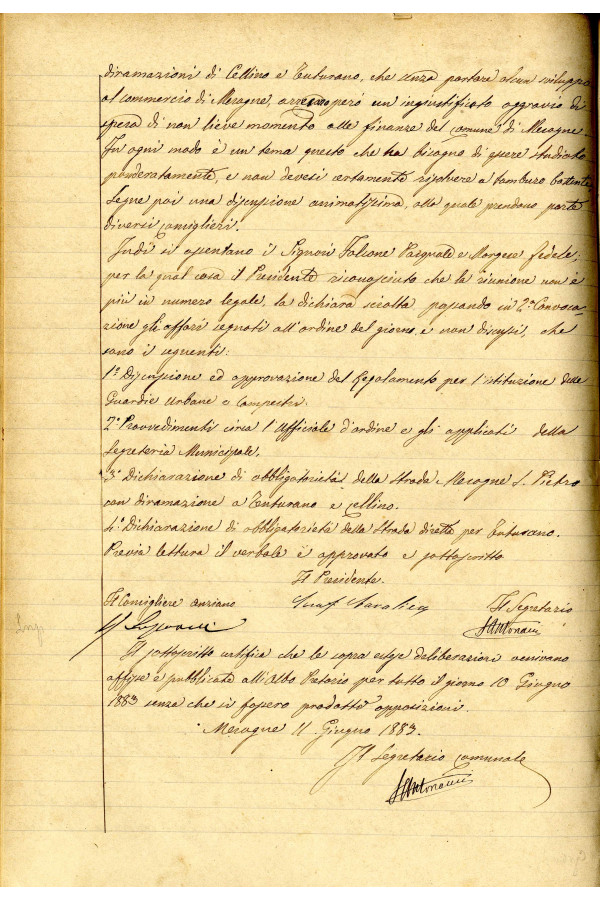 diramazioni di Cellino e Tuturano, che senza portare alcun sviluppo
al commercio di Mesagne, arrecano però un ingiustificato aggravio di
spesa di non lieve momento alle finanze del comune di Mesagne.
In ogni modo è un tema questo che ha bisogno di essere studiato
ponderatamente, e non devesi certamente risolvere a tamburo battente
Segue poi una discussione animatissima, alla quale prendono parte
diversi Consiglieri.
Indi si assentano i Signori Falcone Pasquale e Morgese Fedele;
per la qual cosa il Presidente riconosciuto che la riunione non è
più in numero legale, la dichiara sciolta passando in 2ª Convoca-
zione gli affari segnati all'ordine del giorno, e non discussi, che
sono i seguenti:
1º Discussione ed approvazione del Regolamento per l'istituzione delle
Guardie Urbane e Campestri.
2º Provvedimenti circa l'Ufficiale d'ordine e gli applicati della
Segreteria Municipale.
3º Dichiarazione di obbligatorietà della strada Mesagne S. Pietro
con diramazione a Tuturano e Cellino.
4º Dichiarazione di obbligatorietà della Strada diretta per Tuturano.
Previa lettura il verbale è approvato e sottoscritto
Il Presidente
Il Consigliere anziano
Il Segretario
Antonucci
Il sottoscritto certifica che le sopra estese deliberazioni venivano
affisse e pubblicate all'Albo Pretorio per tutto il giorno 10 Giugno
1883 senza che si fossero prodotte opposizioni.
Mesagne 11 Giugno 1883.
Il Segretario Comunale
Antonucci